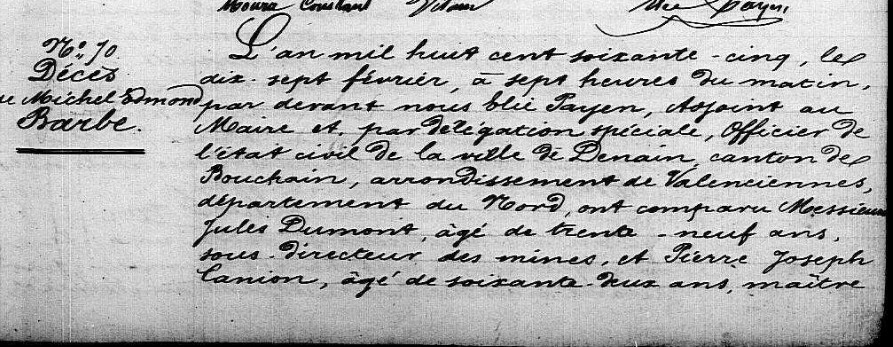 Moura Constant Vitoux
Elie Payen
N° 70
Décès
de Michel Edmond
Barbe.
L'an mil huit cent soixante-cinq, le
dix-sept février, à sept heures du matin,
par devant nous Elie Payen, Adjoint au
Maire et, par délégation spéciale, Officier de
l'état civil de la ville de Denain, canton de
Bouchain, arrondissement de Valenciennes,
département du Nord, ont comparu Messieurs
Jules Dumont, âgé de trente-neuf ans,
sous-directeur des mines, et Pierre Joseph
Canion, âgé de soixante-deux ans, maître